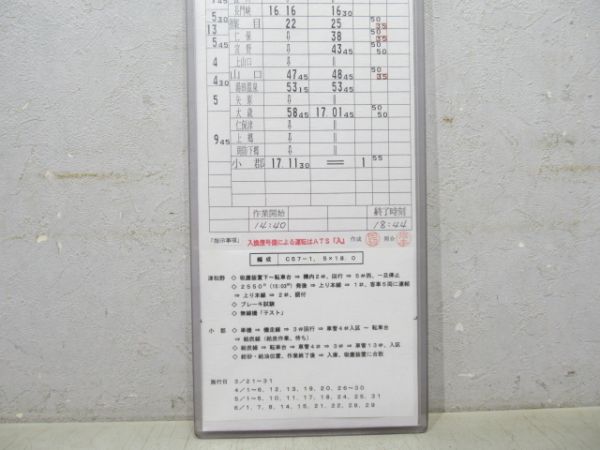 長門峡 16.16 16 30
5 30 篠目 22 25 50 35
13 仁保 〃 38 50 35
5 45 宮野 〃 43 45 50
4 上山口 〃 ‖
4 30 山口 47 45 48 45 50 35
湯田温泉 53 15 53 45
5 矢原 〃 ‖
大歳 58 45 17.01 45
仁保津 〃 ‖
9 45 上郷 〃 ‖
周防下郷 〃 ‖
小郡 17.11 30 ＝ 1 55
作業開始 終了時刻
14:40 18:44
「指示事項」 入換信号機による運転はATS『入』 作成 照合
編成 C57-1, 5×18.0
津和野 ◇ 吸塵装置下～転車台 ⇒ 機内2#, 回行 ⇒ 5#西, 一旦停止
◇ 2550ᴰ (15:03ᴳ) 発後 ⇒ 上り本線 ⇒ 1#, 客車5両に連結
⇒ 上り本線 ⇒ 2#, 据付
◇ ブレーキ試験
◇ 無線機『テスト』
小郡 ◇ 単機 ⇒ 機走線 ⇒ 3#回行 ⇒ 車管4#入区 ～ 転車台
⇒ 給炭線 (給炭作業, 待ち)
◇ 給炭線 ⇒ 転車台 ⇒ 車管4# ⇒ 3# ⇒ 車管13#, 入区
◇ 給砂・給油位置, 作業終了後 ⇒ 入庫, 吸塵装置に合致
施行日 3／21～31
4／1～6, 12, 13, 19, 20, 26～30
5／1～5, 10, 11, 17, 18, 24, 25, 31
6／1, 7, 8, 14, 15, 21, 22, 28, 29